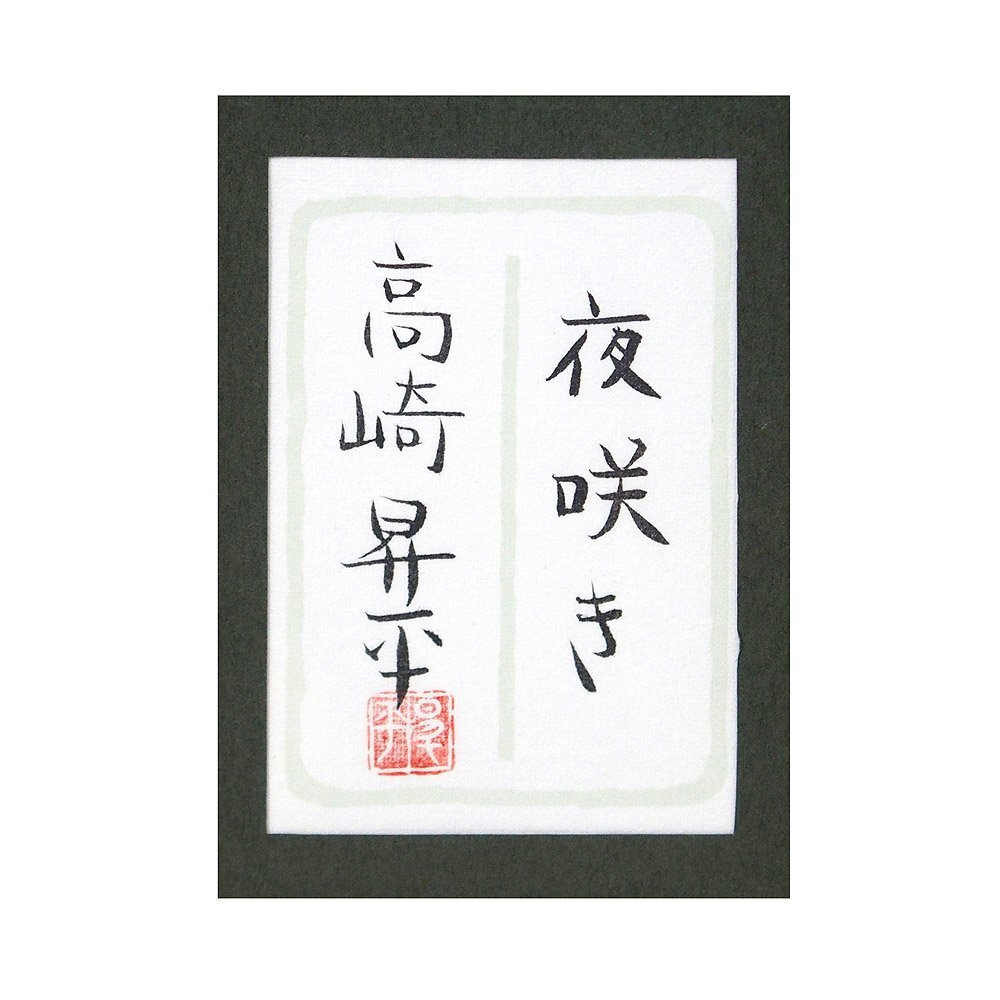 夜咲き
高崎昇平